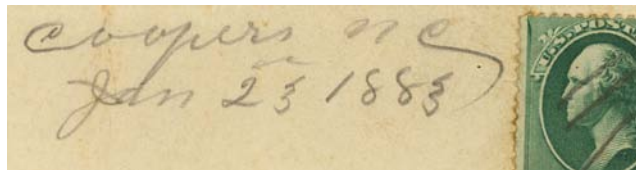 Coopers NC
Jan 23 1883
U.S. POST